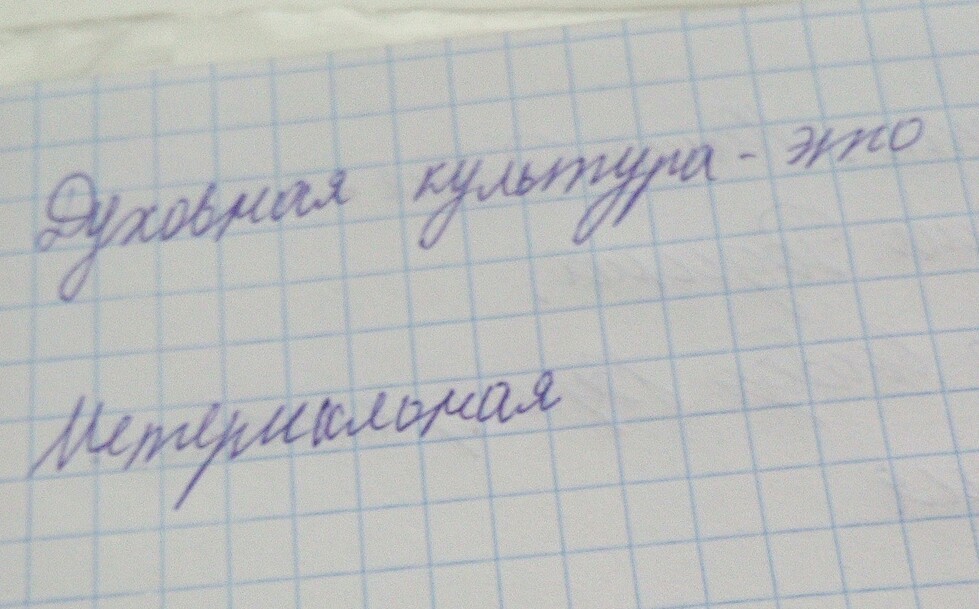 Духовная культура - это
Метериальная